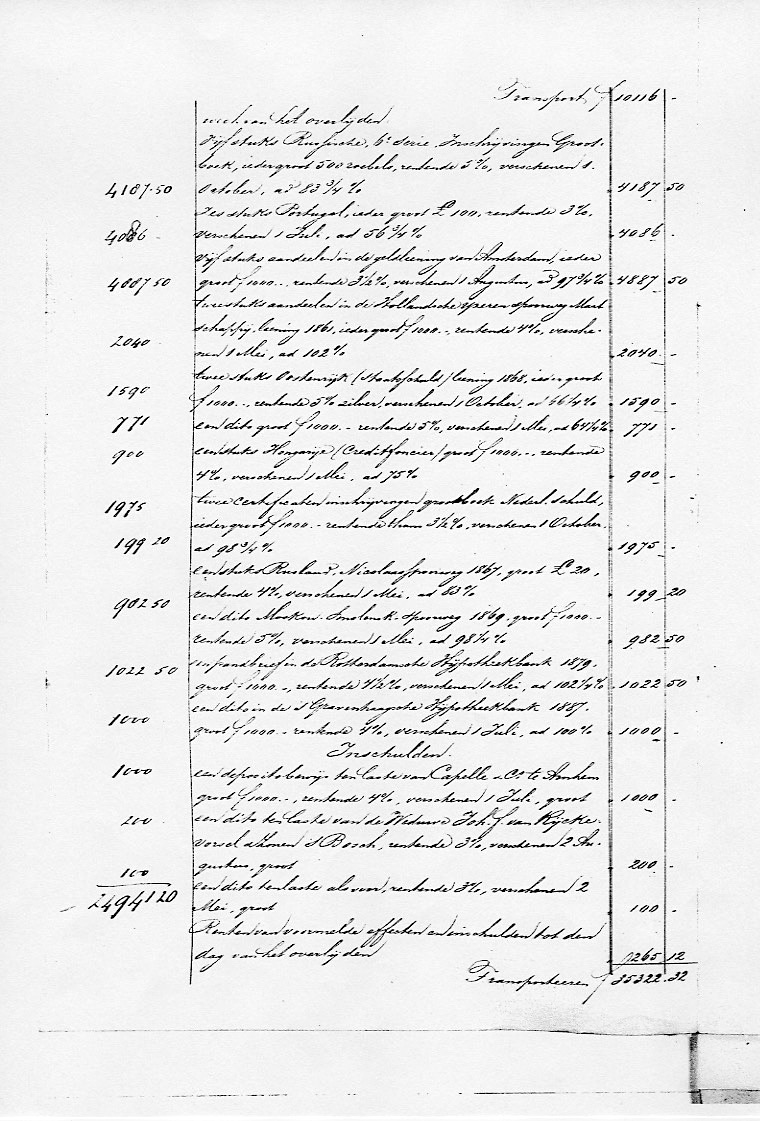 Transport f 10116 -
week van het overlijden.
Vijf stuks Russische, 6e Serie, Inschrijvingen Groot-
boek, ieder groot 500 roebels, rentende 5%, verschenen 1
4187.50 October, ad 83 3/4 % " 4187 50
Zes stuks Portugal, ieder groot £ 100, rentende 3%,
4086 - verschenen 1 Juli, ad 56 3/4 % " 4086 -
Vijf stuks aandeelen in de geldleening van Amsterdam, ieder
4887 50 groot f 1000.-, rentende 3 1/2 %, verschenen 1 Augustus, ad 97 3/4 % " 4887 50
twee stuks aandeelen in de Hollandsche IJzeren Spoorweg Maat-
schappij, leening 1861, ieder groot f 1000.-, rentende 4%, versche-
2040 - nen 1 Mei, ad 102 % " 2040 -
twee stuks Oostenrijk (Staatsschuld) leening 1868, ieder groot
1590 f 1000.-, rentende 5% zilver, verschenen 1 October, ad 66 1/4 % " 1590 -
771 een dito groot f 1000.- rentende 5%, verschenen 1 Mei, ad 64 1/4 % " 771 -
900 een stuks Hongarije (Credit foncier) groot f 1000.-, rentende
4%, verschenen 1 Mei, ad 75% " 900 -
1975 twee certificaten inschrijvingen grootboek Nederl. Schuld,
ieder groot f 1000.- rentende thans 3 1/2 %, verschenen 1 October,
199 20 ad 98 3/4 % " 1975 -
een stuks Rusland, Nicolaas spoorweg 1867, groot £ 20,
rentende 4%, verschenen 1 Mei, ad 83% " 199 20
982 50 een dito Moskou-Smolensk-spoorweg 1869, groot f 1000.-
rentende 5%, verschenen 1 Mei, ad 98 1/4 % " 982 50
1022 50 een pandbrief in de Rotterdamsche Hypotheekbank 1879,
groot f 1000.-, rentende 4 1/2 %, verschenen 1 Mei, ad 102 1/4 % " 1022 50
1000 een dito in de 's Gravenhaagsche Hypotheekbank 1887,
groot f 1000.- rentende 4%, verschenen 1 Juli, ad 100% " 1000 -
Inschulden.
1000 een depositobewijs ten laste van Capelle & Co te Arnhem
groot f 1000.-, rentende 4%, verschenen 1 Juli, groot " 1000 -
200 een dito ten laste van de Weduwe Joh. J. van Rijcke-
vorsel & Zonen 's Bosch, rentende 3%, verschenen 2 Au-
100 gustus, groot " 200 -
24941 20 een dito ten laste als voor, rentende 3%, verschenen 2
Mei, groot " 100 -
Renten van voormelde effecten en inschulden tot den
dag van het overlijden " 265 12
Transporteeren f 35322 32